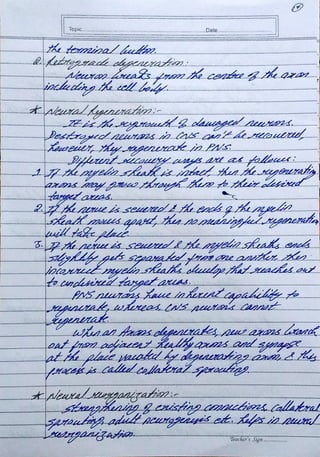 Topic Date
the terminal button.
B. Retrograde degeneration:
Neuron breaks from the centre of the axon
including the cell body.
* Neural Regeneration:-
It is the regrowth of damaged neurons.
Destroyed neurons in CNS can't be recovered,
however, they regenerate in PNS.
Different recovery ways are as follows:
1. If the myelin sheath is intact then the regenerating
axons may grow through them to their desired
target areas.
2. If the nerve is severed & the ends of the myelin
sheath moves apart, then no meaningful regeneration
will take place
3. If the nerve is severed & the myelin sheaths ends
slightly gets separated from one another then
incorrect myelin sheaths develop that reaches out
to undesired target areas.
PNS neurons have inherent capability to
regenerate, whereas CNS neurons cannot
regenerate.
When an Axons degenerates, new axons branch
out from adjacent healthy axons and synapse
at the place vacated by degenerating axon & this
process is called collateral sprouting.
* Neural reorganization:-
strengthening of existing connections, collateral
sprouting, adult neurogenesis etc. helps in neural
reorganization.
Teacher's Sign